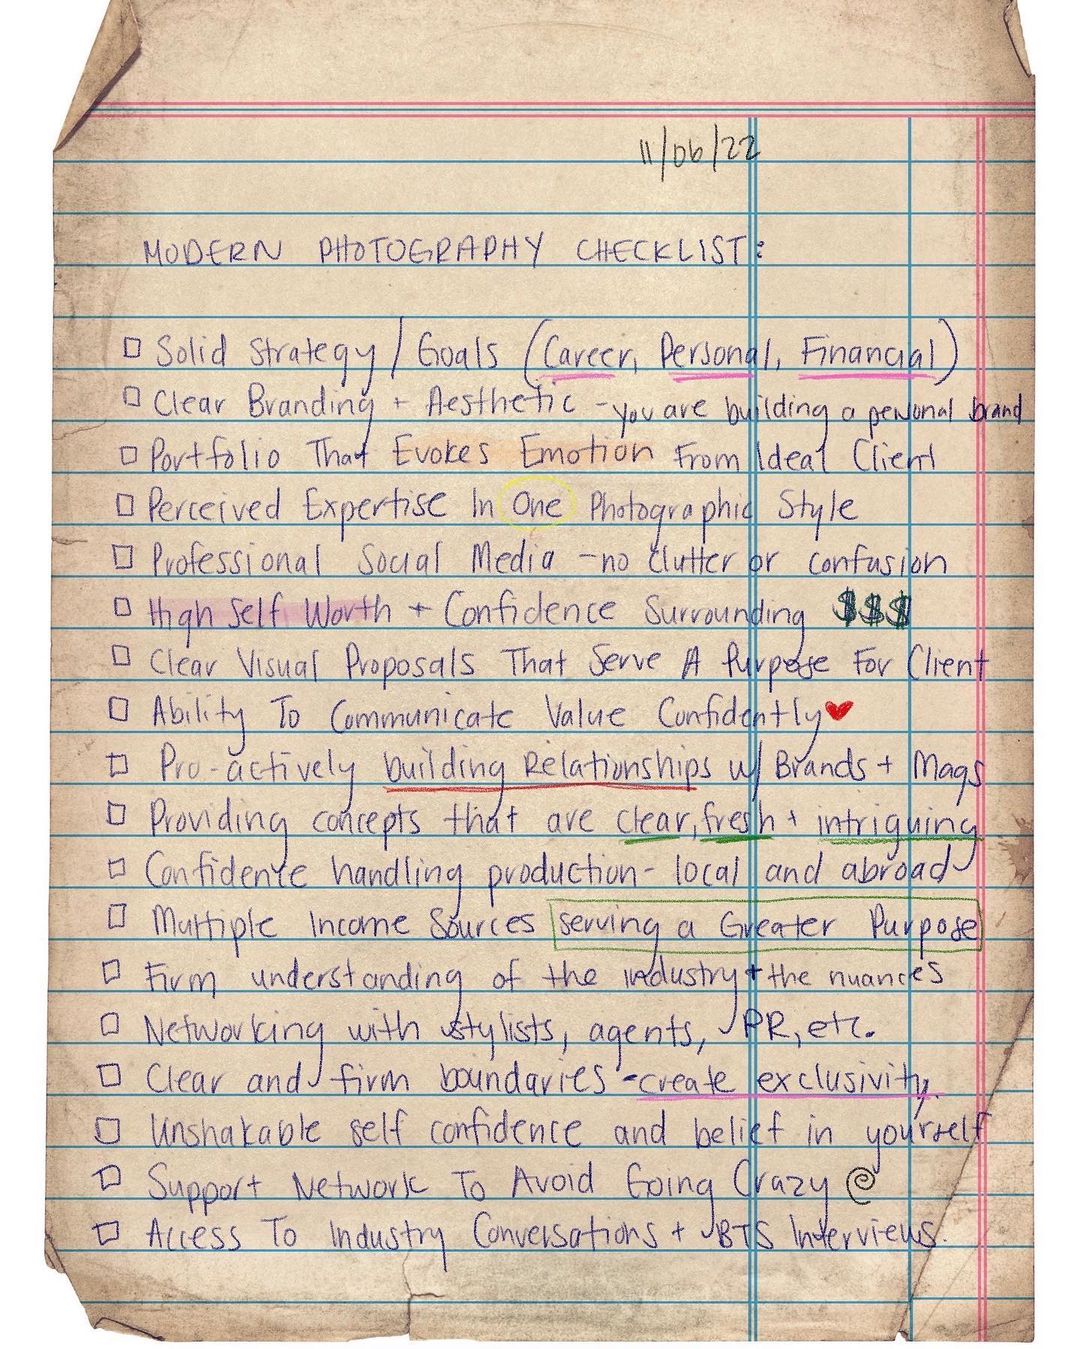 11/06/22
MODERN PHOTOGRAPHY CHECKLIST:
Solid Strategy / Goals (Career, Personal, Financial)
Clear Branding + Aesthetic - you are building a personal brand
Portfolio That Evokes Emotion From Ideal Client
Perceived Expertise In One Photographic Style
Professional Social Media - no clutter or confusion
High Self Worth + Confidence Surrounding $$$
Clear Visual Proposals That Serve A Purpose For Client
Ability To Communicate Value Confidently ♥
Pro-actively building Relationships w/ Brands + Mags
Providing concepts that are clear, fresh + intriguing
Confidence handling production - local and abroad
Multiple Income Sources serving a Greater Purpose
Firm understanding of the industry + the nuances
Networking with stylists, agents, PR, etc.
Clear and firm boundaries - create exclusivity.
Unshakable self confidence and belief in yourself
Support Network To Avoid Going Crazy
Access To Industry Conversations + BTS Interviews.